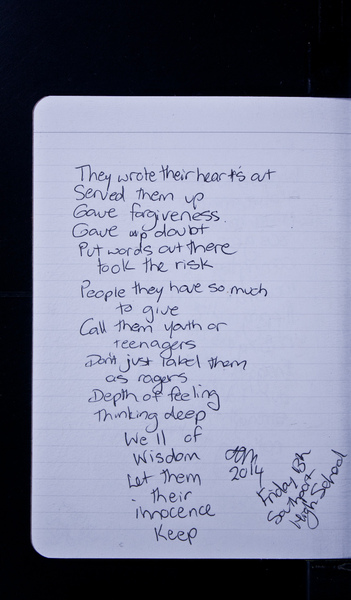 They wrote their heart's out
Served them up
Gave forgiveness.
Gave up doubt
Put words out there
took the risk
People they have so much
to give
Call them youth or
teenagers
Don't just label them
as ragers
Depth of feeling
Thinking deep
We'll of
Wisdom
Let them
their
innocence
Keep
2014
Friday 13th
Southport
High School